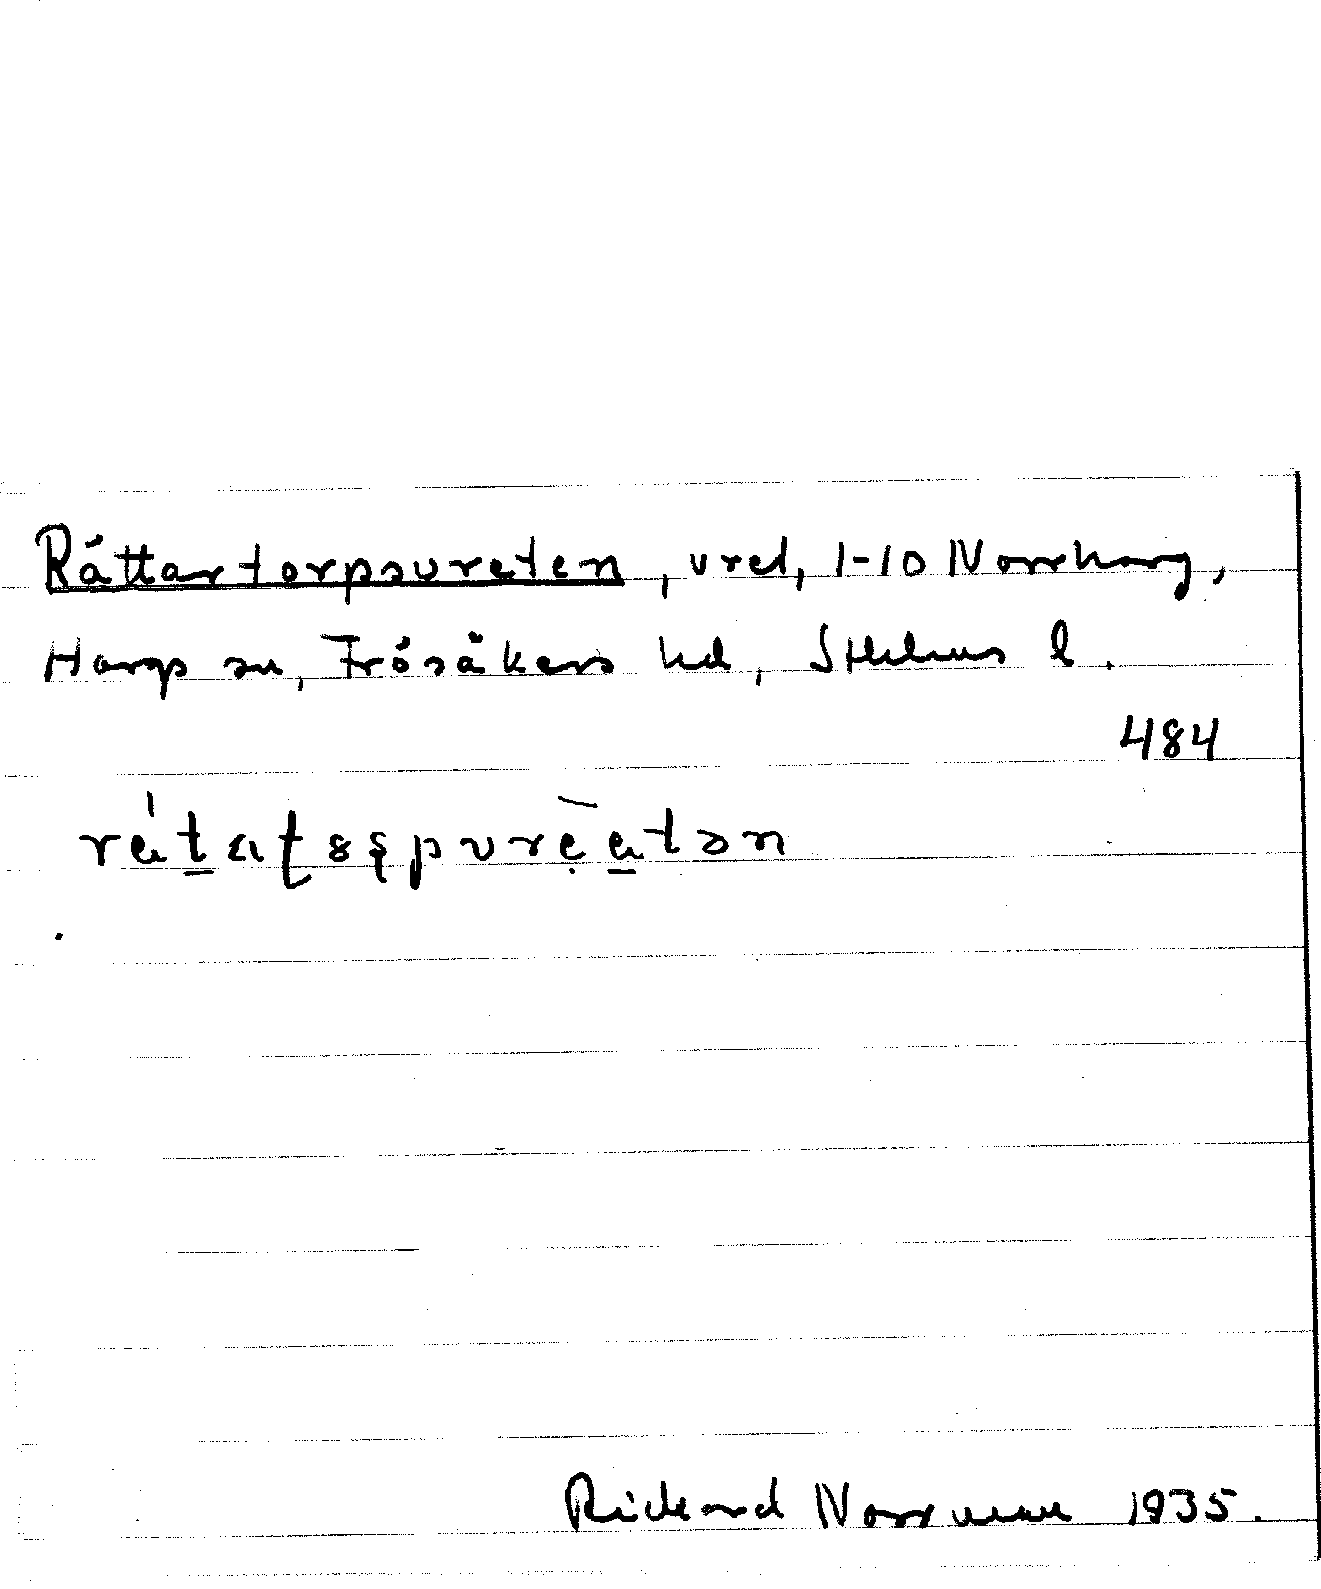 Rättartorpsvreten, vret, 1-10 Norrharg,
Hargs sn, Frösåkers hd, Sthlms l.
484
Rickard Norrman 1935.